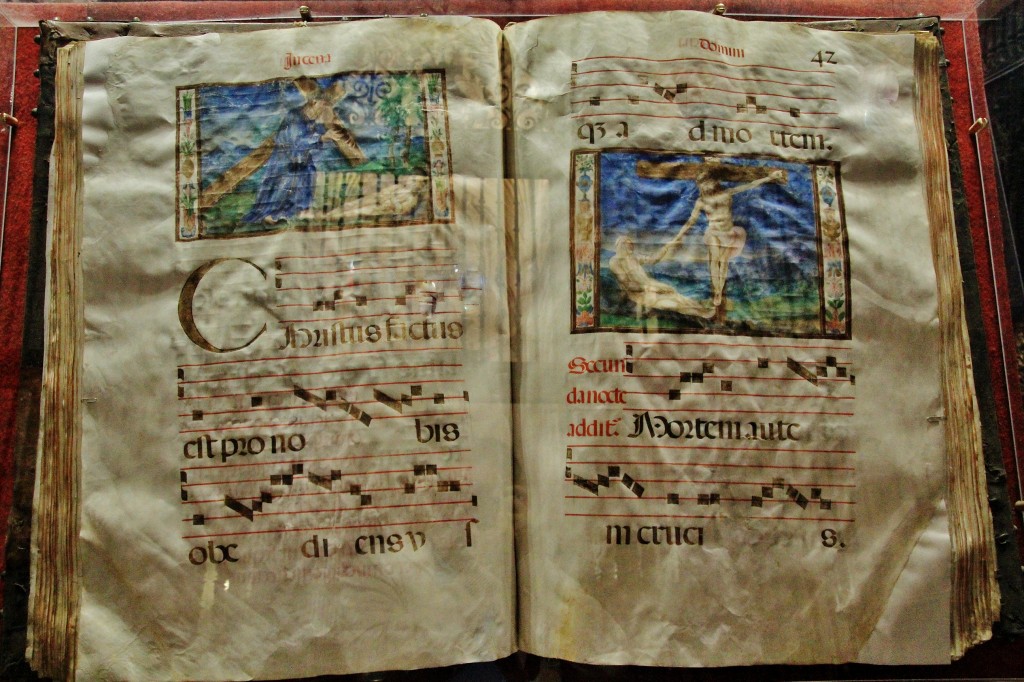 In cena
Christus factus
est pro no bis
obe di ens v ſ
Domini 42
qz a d mo rtem.
Secun
da nocte
addit.r Mortem aute
in cruci s.